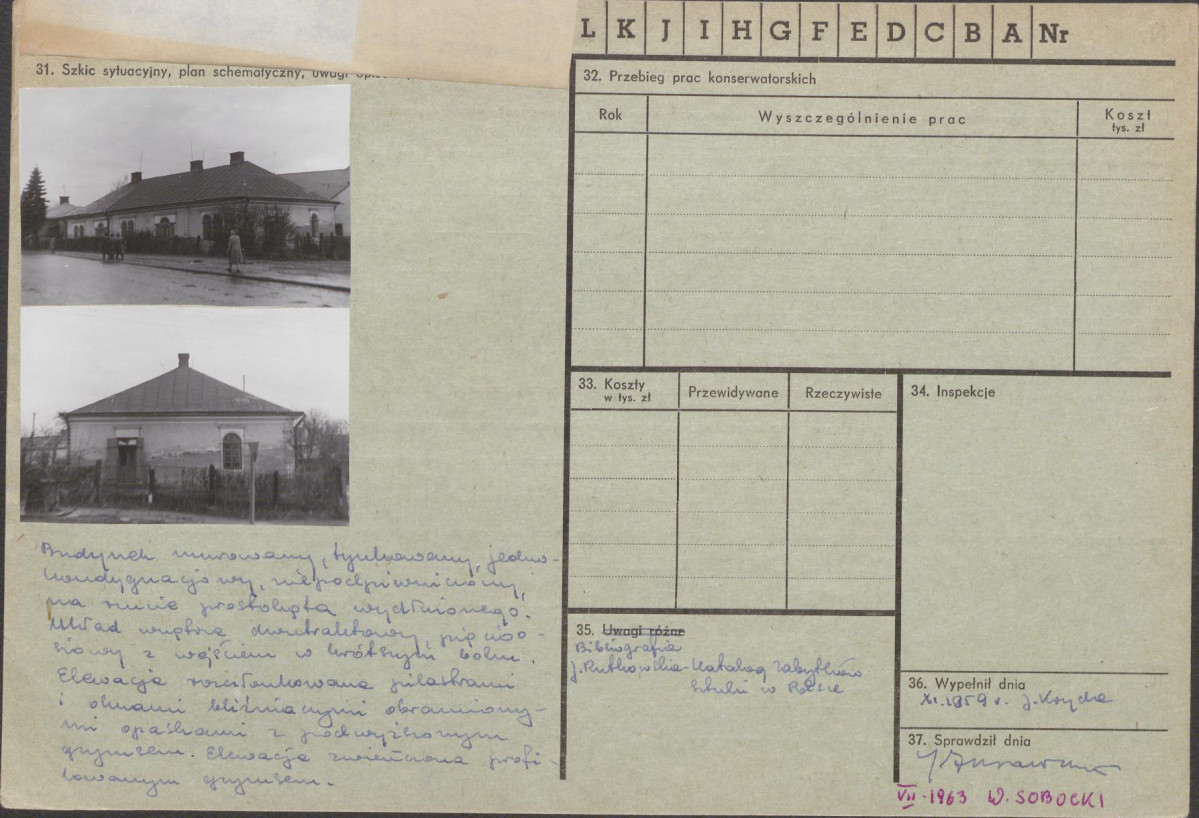 L K J I H G F E D C B A Nr
31. Szkic sytuacyjny, plan schematyczny, uwagi
Budynek murowany, tynkowany, jedno-
kondygnacjowy, niepodpiwniczony,
na rzucie prostokąta wydłużonego.
Układ wnętrza dwutraktowy, pięcioo-
siowy z wejściem w krótszym boku.
Elewacja rozczłonkowana pilastrami
i oknami bliźniacymi obramiony-
mi opaskami z podwyższonym
gzymsem. Elewacja zwieńczona profi-
lowanym gzymsem.
32. Przebieg prac konserwatorskich
Rok Wyszczególnienie prac Koszt
tys. zł
33. Koszty
w tys. zł Przewidywane Rzeczywiste
34. Inspekcje
35. Uwagi różne
Bibliografia
J. Rutkowska - Katalog Zabytków
Sztuki w Polsce
36. Wypełnił dnia
XI.1959 r. J.
37. Sprawdził dnia
VII-1963 W. SOBOCKI